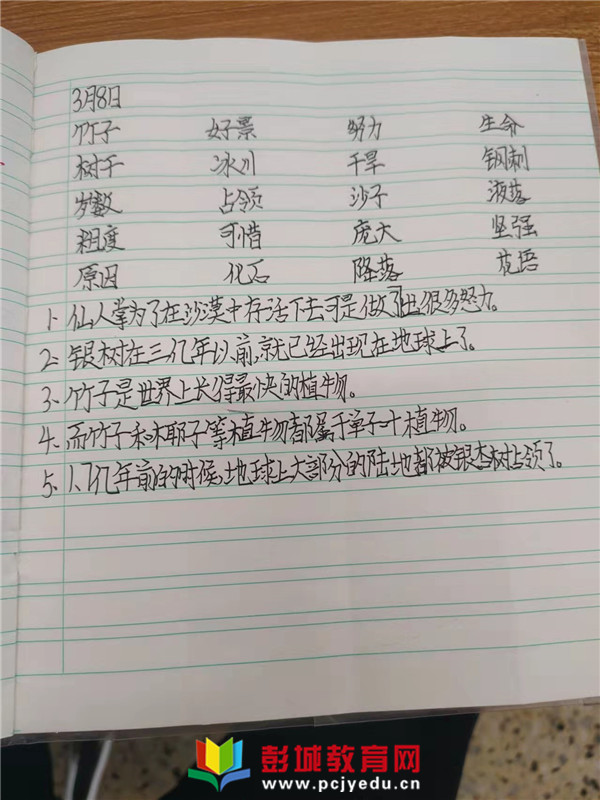 3月8日
竹子 好景 努力 生命
树干 冰川 干旱 钢刺
岁数 占领 沙子 液落
粗度 可惜 庞大 坚强
原因 化石 降落 花语
1. 仙人掌为了在沙漠中存活下去可是做了出很多努力。
2. 银树在三亿年以前,就已经出现在地球上了。
3. 竹子是世界上长得最快的植物。
4. 而竹子和椰子等植物都属于单子叶植物。
5. 1.7亿年前的时候,地球上大部分的陆地都被银杏树占领了。
彭城教育网
www.pcjyedu.cn